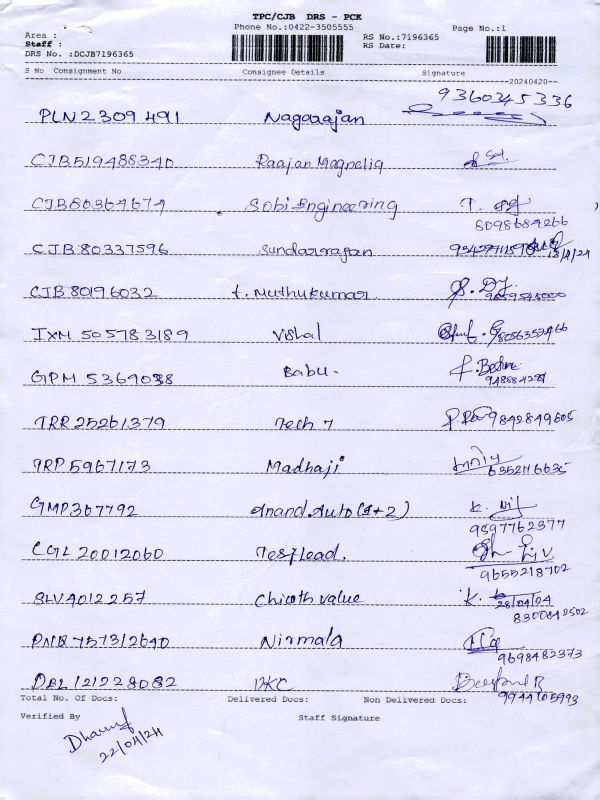 TPC/CJB DRS - PCK
Phone No.:0422-3505555
Page No.:1
Area :
Staff :
DRS No. :DCJB7196365
RS No.:7196365
RS Date:
S No Consignment No Consignee Details Signature
20240420
9360345336
PLN2309491 Nagarajan
CJB519488340 Raajan Magnetig
CJB80364674 Sobi Engineering
8098684266
CJB80337596 Sundarrajan
CJB80196032 t. Muthukumar
IXM 505783189 Vishal 8056352466
GPM 5369038 Babu.
TRR25261379 Tech 7 9842849605
TRP5967173 Madhaji
6352116635
GMP367792 Anand Auto(1+2)
9597762377
CGL20012060 Testlead.
9655218702
SLV4012257 Chicoth value
28/04/04
8300842502
PNQ757312640 Nirmala
9698482373
DEL121228082 IKC
9944105993
Total No. Of Docs: Delivered Docs: Non Delivered Docs:
Verified By Staff Signature
22/04/24